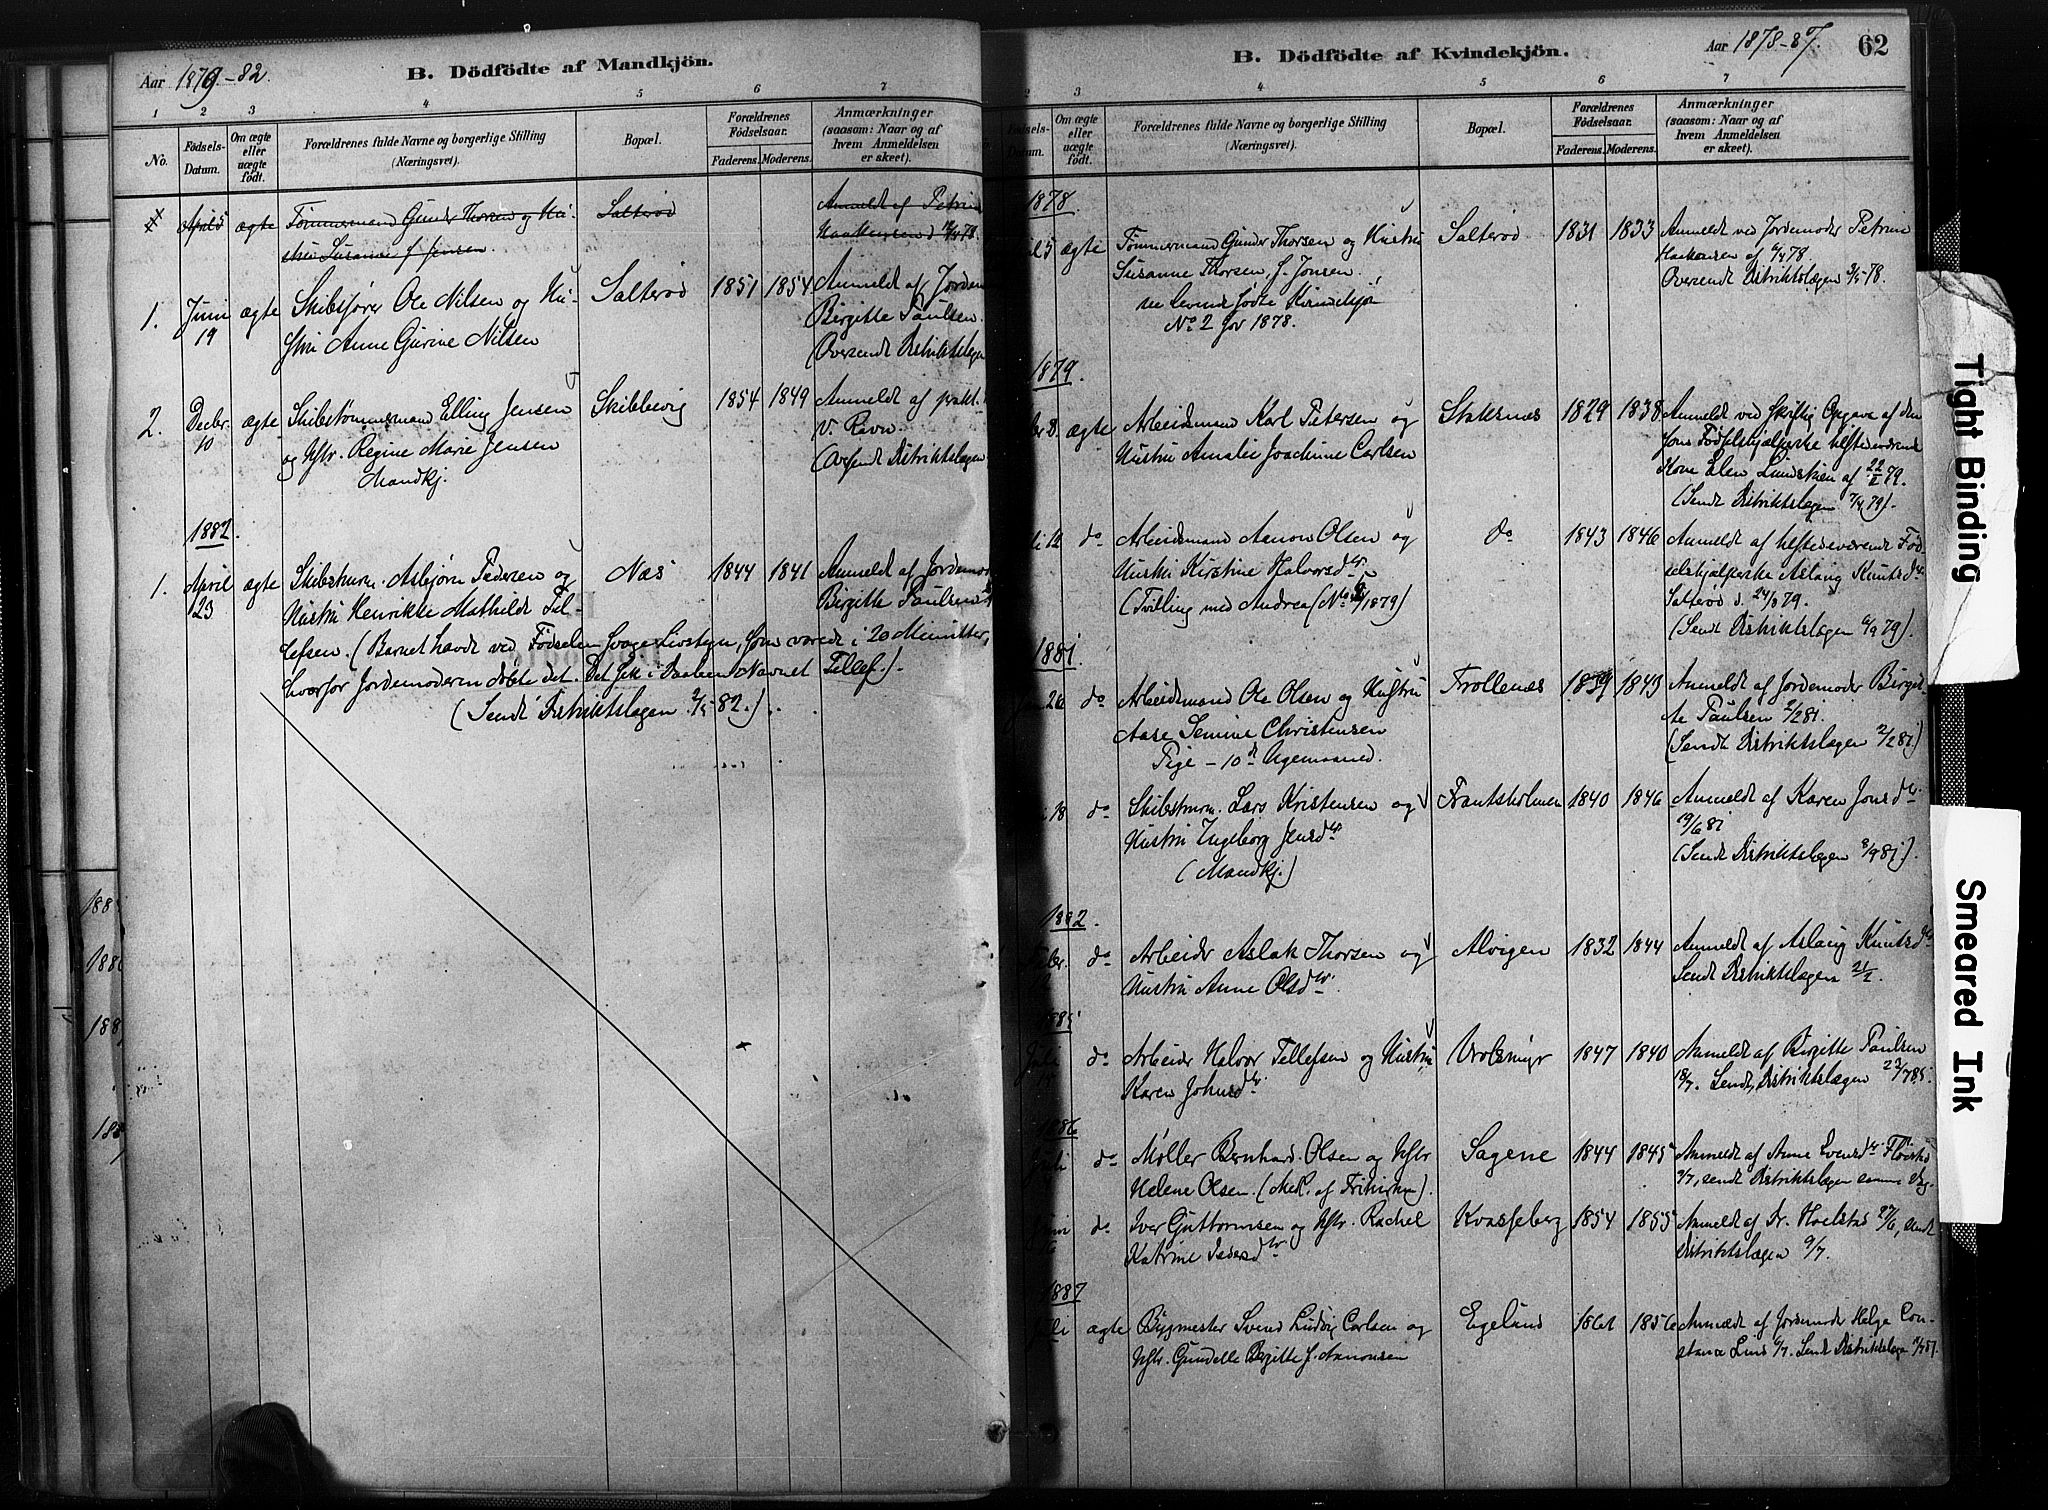 Aar 1879-82.
B. Dödfödte af Mandkjön.
1 2 3 4 5 6 7
No.
Födsels-Datum.
Om ægte eller uægte födt.
Forældrenes fulde Navne og borgerlige Stilling (Næringsvei).
Bopæl.
Forældrenes Födselsaar.
Faderens. Moderens.
Anmærkninger (saasom: Naar og af hvem Anmeldelsen er skeet).
April 5 ægte Tømmermand Gunder Thorsen og Hu- Salterød Anmeldt af Petrine
stru Susanne f. Jensen
1. Juni 19 ægte Skibsfører Ole Nilsen og Hu- Salterød 1851 1854 Anmeldt af Jordem
stru Anne Gurine Nilsen
Birgitte Paulsen.
(Oversendt Distriktslægen
2. Decbr. 10 ægte Skibstømmermand Elling Jensen Skibbevig 1854 1849 Anmeldt af prakt.
og Hstr. Regine Marie Jensen
V Ravn.
Mandkj.
Distriktslægen
1882.
1. April 23 ægte Skibsturm. Asbjørn Pedersen og Næs 1844 1841 Anmeldt af Jordemo
Hustru Henrikke Mathilde Tel-
Birgitte Paulsen
lefsen. (Barnet havde ved Fødselen svage Livstegn, som varede i 20 Minutter,
hvorfor Jordemoderen døbte det. Det fik i Daaben Navnet Tellef).
(Sendt Distriktslægen 2/5-82.)
188
1886
188
188
B. Dödfödte af Kvindekjön.
Aar 1878-87.
62
2 3 4 5 6 7
Födsels-Datum.
Om ægte eller uægte födt.
Forældrenes fulde Navne og borgerlige Stilling (Næringsvei).
Bopæl.
Forældrenes Födselsaar.
Faderens. Moderens.
Anmærkninger (saasom: Naar og af hvem Anmeldelsen er skeet).
1878
5 ægte Tømmermand Gunder Thorsen og Hustru Salterød 1831 1833 Anmeldt ved Jordemoder Petrine
Susanne Thorsen, f. Jonsen.
Haakensen af 6/4 78
se Levende fødte Kvindekjøn
Oversendt Distriktslægen 78.
No 2 for 1878.
1879.
8. ægte Arbeidsmand Karl Petersen og Staknes 1829 1838 Anmeldt ved skriftlig Opgave af den
Hustru Amalie Joachine Carlsen
som Fødselshjælperske tilstedeværende
Kone Elen
(Sendt Distriktslægen 79).
12 do Arbeidsmand Aanon Olsen og do 1843 1846 Anmeldt af tilstedeværende Fød-
Hustru Kirstine Halvorsdtr
selshjælperske Aslaug Knutsdtr
(Tvilling med Andrea (No 1879)
Salterød d. 24/8 79.
(Sendt Distriktslægen 79).
1881.
26 do Arbeidsmand Ole Olsen og Hustru Trollenæs 1839 1843 Anmeldt af Jordemoder Birgit-
Aase Semine Christensen
te Paulsen 2/2 81.
Pige - 10de Ugemaaned.
(Sendt Distriktslægen 2/2 81.)
18 do Skibsturm. Lars Kristensen og Frantsholmen 1840 1846 Anmeldt af Karen Jonsdtr.
Hustru Ingeborg Jensdtr
19/6 81
(Mandkj.)
(Sendt Distriktslægen 8/9 81).
1882.
Febr. do Arbeider Aslak Thorsen og Alvigen 1832 1844 Anmeldt af Aslaug Knutsdtr
Hustru Anne Olsdtr.
Sendt Distriktslægen 21/2.
1885
Juli do Arbeider Halvor Tellefsen og Hustru 1847 1840 Anmeldt af Birgitte Paulsen
Karen Johnsdtr.
18/7. Sendt Distriktslægen 23/7 85.
1886
Juli do Møller Bernhard Olsen og Hstr Sagene 1844 1845 Anmeldt af Anne Evensdtr
Helene Olsen. (Med. af Frikirken).
sendt Distriktslægen samme Dag.
do Iver Guttormsen og Hstr. Rachel Kvasseberg 1854 1855 Anmeldt af Dr. 27/6, sendt
Katrine Pedersdtr
Distriktslægen 9/7.
1887
Juli ægte Bygmester Svend Ludvig Carlsen og Egeland 1861 1856 Anmeldt af Jordemoder Helga Con-
Hstr. Gundelle Birgitte f. Aanonsen
stance Lund. Sendt Distriktslægen
Tight Binding
Smeared Ink